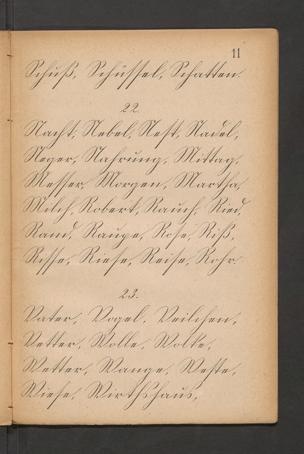 11
Schuß, Schüssel, Schatten.
22
Nacht, Nebel, Nest, Nadel,
Neger, Nahrung, Mittag,
Messer, Morgen, Martha,
Milch, Robert, Rauch, Ried,
Rand, Raupe, Rose, Riß,
Risse, Riese, Reise, Rohr.
23.
Vater, Vogel, Veilchen,
Vetter, Wolle, Wolke,
Wetter, Wange, Weste,
Wiese, Wirthshaus,